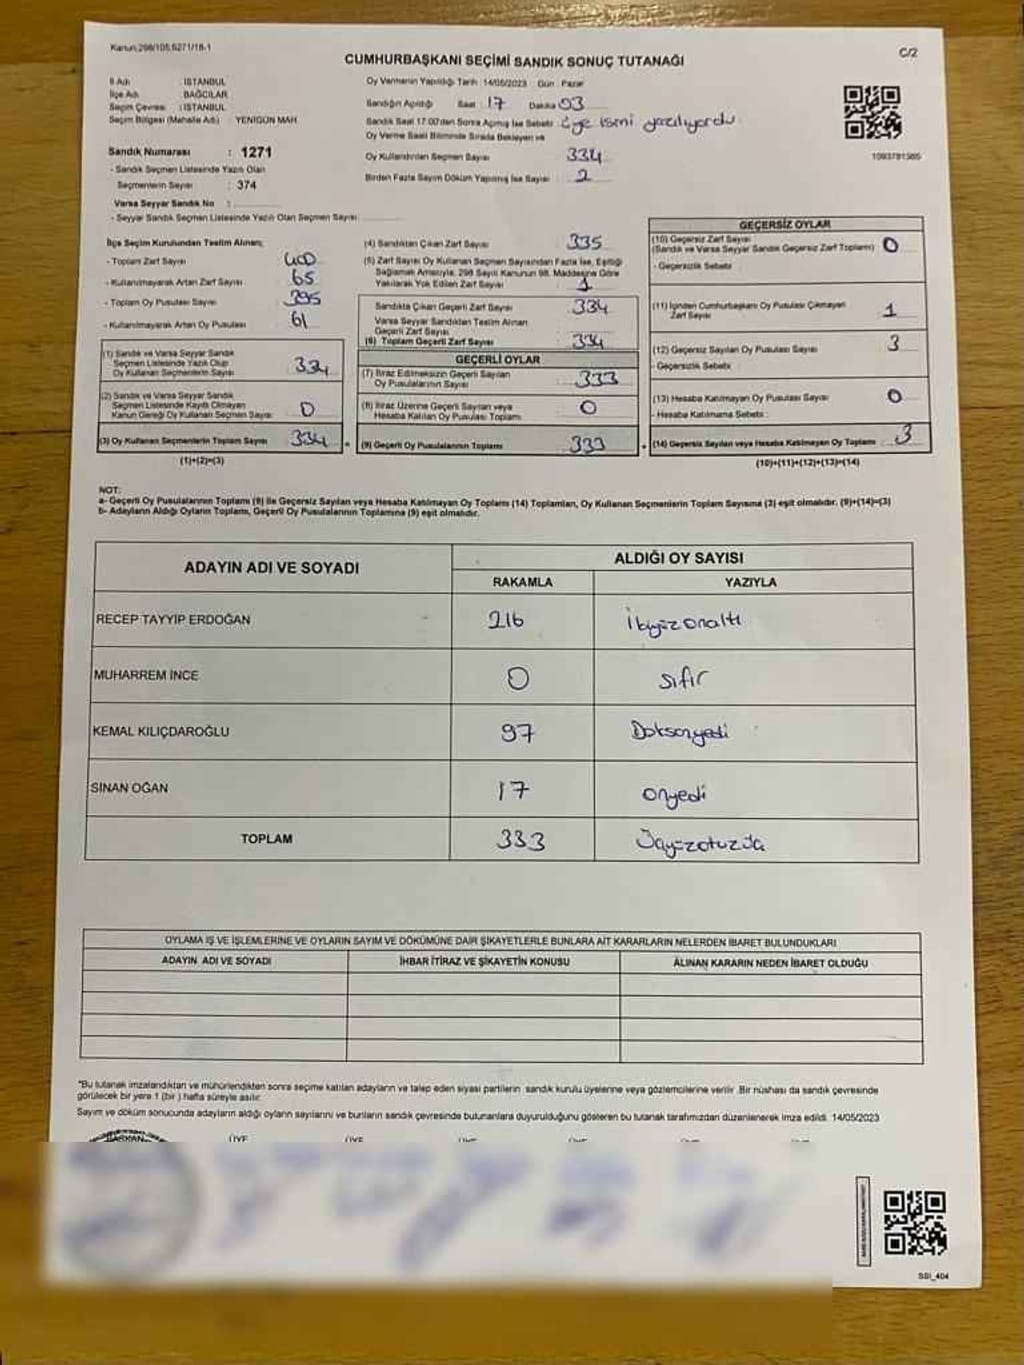 Kanun:298/105,6271/18-1
C/2
CUMHURBAŞKANI SEÇİMİ SANDIK SONUÇ TUTANAĞI
İl Adı : İSTANBUL
İlçe Adı : BAĞCILAR
Seçim Çevresi : İSTANBUL
Seçim Bölgesi (Mahalle Adı) : YENİGÜN MAH
Sandık Numarası : 1271
- Sandık Seçmen Listesinde Yazılı Olan
Seçmenlerin Sayısı : 374
Varsa Seyyar Sandık No :
- Seyyar Sandık Seçmen Listesinde Yazılı Olan Seçmen Sayısı
Oy Vermenin Yapıldığı Tarih 14/05/2023 Gün : Pazar
Sandığın Açıldığı Saat : 17 Dakika 03
Sandık Saat 17:00'den Sonra Açılmış İse Sebebi : üye ismi yazılıyordu.
Oy Verme Saati Bitiminde Sırada Bekleyen ve
Oy Kullandırılan Seçmen Sayısı 334
Birden Fazla Sayım Döküm Yapılmış İse Sayısı 2
1093781385
İlçe Seçim Kurulundan Teslim Alınan;
- Toplam Zarf Sayısı 400
- Kullanılmayarak Artan Zarf Sayısı 65
- Toplam Oy Pusulası Sayısı 395
- Kullanılmayarak Artan Oy Pusulası 61
(1) Sandık ve Varsa Seyyar Sandık
Seçmen Listesinde Yazılı Olup
Oy Kullanan Seçmenlerin Sayısı 334
(2) Sandık ve Varsa Seyyar Sandık
Seçmen Listesinde Kayıtlı Olmayan
Kanun Gereği Oy Kullanan Seçmen Sayısı 0
(3) Oy Kullanan Seçmenlerin Toplam Sayısı 334
(1)+(2)=(3)
(4) Sandıktan Çıkan Zarf Sayısı 335
(5) Zarf Sayısı Oy Kullanan Seçmen Sayısından Fazla İse, Eşitliği
Sağlamak Amacıyla, 298 Sayılı Kanunun 98. Maddesine Göre
Yakılarak Yok Edilen Zarf Sayısı 1
Sandıkta Çıkan Geçerli Zarf Sayısı 334
Varsa Seyyar Sandıktan Teslim Alınan
Geçerli Zarf Sayısı
(6) Toplam Geçerli Zarf Sayısı 334
GEÇERLİ OYLAR
(7) İtiraz Edilmeksizin Geçerli Sayılan
Oy Pusulalarının Sayısı 333
(8) İtiraz Üzerine Geçerli Sayılan veya
Hesaba Katılan Oy Pusulası Toplamı 0
= (9) Geçerli Oy Pusulalarının Toplamı 333
GEÇERSİZ OYLAR
(10) Geçersiz Zarf Sayısı
(Sandık ve Varsa Seyyar Sandık Geçersiz Zarf Toplamı) 0
- Geçersizlik Sebebi
(11) İçinden Cumhurbaşkanı Oy Pusulası Çıkmayan
Zarf Sayısı 1
(12) Geçersiz Sayılan Oy Pusulası Sayısı 3
- Geçersizlik Sebebi :
(13) Hesaba Katılmayan Oy Pusulası Sayısı 0
- Hesaba Katılmama Sebebi :
+ (14) Geçersiz Sayılan veya Hesaba Katılmayan Oy Toplamı 3
(10)+(11)+(12)+(13)=(14)
NOT:
a- Geçerli Oy Pusulalarının Toplamı (9) ile Geçersiz Sayılan veya Hesaba Katılmayan Oy Toplamı (14) Toplamları, Oy Kullanan Seçmenlerin Toplam Sayısına (3) eşit olmalıdır. (9)+(14)=(3)
b- Adayların Aldığı Oyların Toplamı, Geçerli Oy Pusulalarının Toplamına (9) eşit olmalıdır.
ADAYIN ADI VE SOYADI ALDIĞI OY SAYISI
RAKAMLA YAZIYLA
RECEP TAYYİP ERDOĞAN 216 ikiyüzonaltı
MUHARREM İNCE 0 sıfır
KEMAL KILIÇDAROĞLU 97 Doksanyedi
SİNAN OĞAN 17 onyedi
TOPLAM 333 Üçyüzotuzüç
OYLAMA İŞ VE İŞLEMLERİNE VE OYLARIN SAYIM VE DÖKÜMÜNE DAİR ŞİKAYETLERLE BUNLARA AİT KARARLARIN NELERDEN İBARET BULUNDUKLARI
ADAYIN ADI VE SOYADI İHBAR İTİRAZ VE ŞİKAYETİN KONUSU ALINAN KARARIN NEDEN İBARET OLDUĞU
*Bu tutanak imzalandıktan ve mühürlendikten sonra seçime katılan adayların ve talep eden siyasi partilerin sandık kurulu üyelerine veya gözlemcilerine verilir. Bir nüshası da sandık çevresinde
görülecek bir yere 1 (bir) hafta süreyle asılır.
Sayım ve döküm sonucunda adayların aldığı oyların sayılarını ve bunların sandık çevresinde bulunanlara duyurulduğunu gösteren bu tutanak tarafımızdan düzenlenerek imza edildi. 14/05/2023
BAŞKAN ÜYE ÜYE
SSI_404